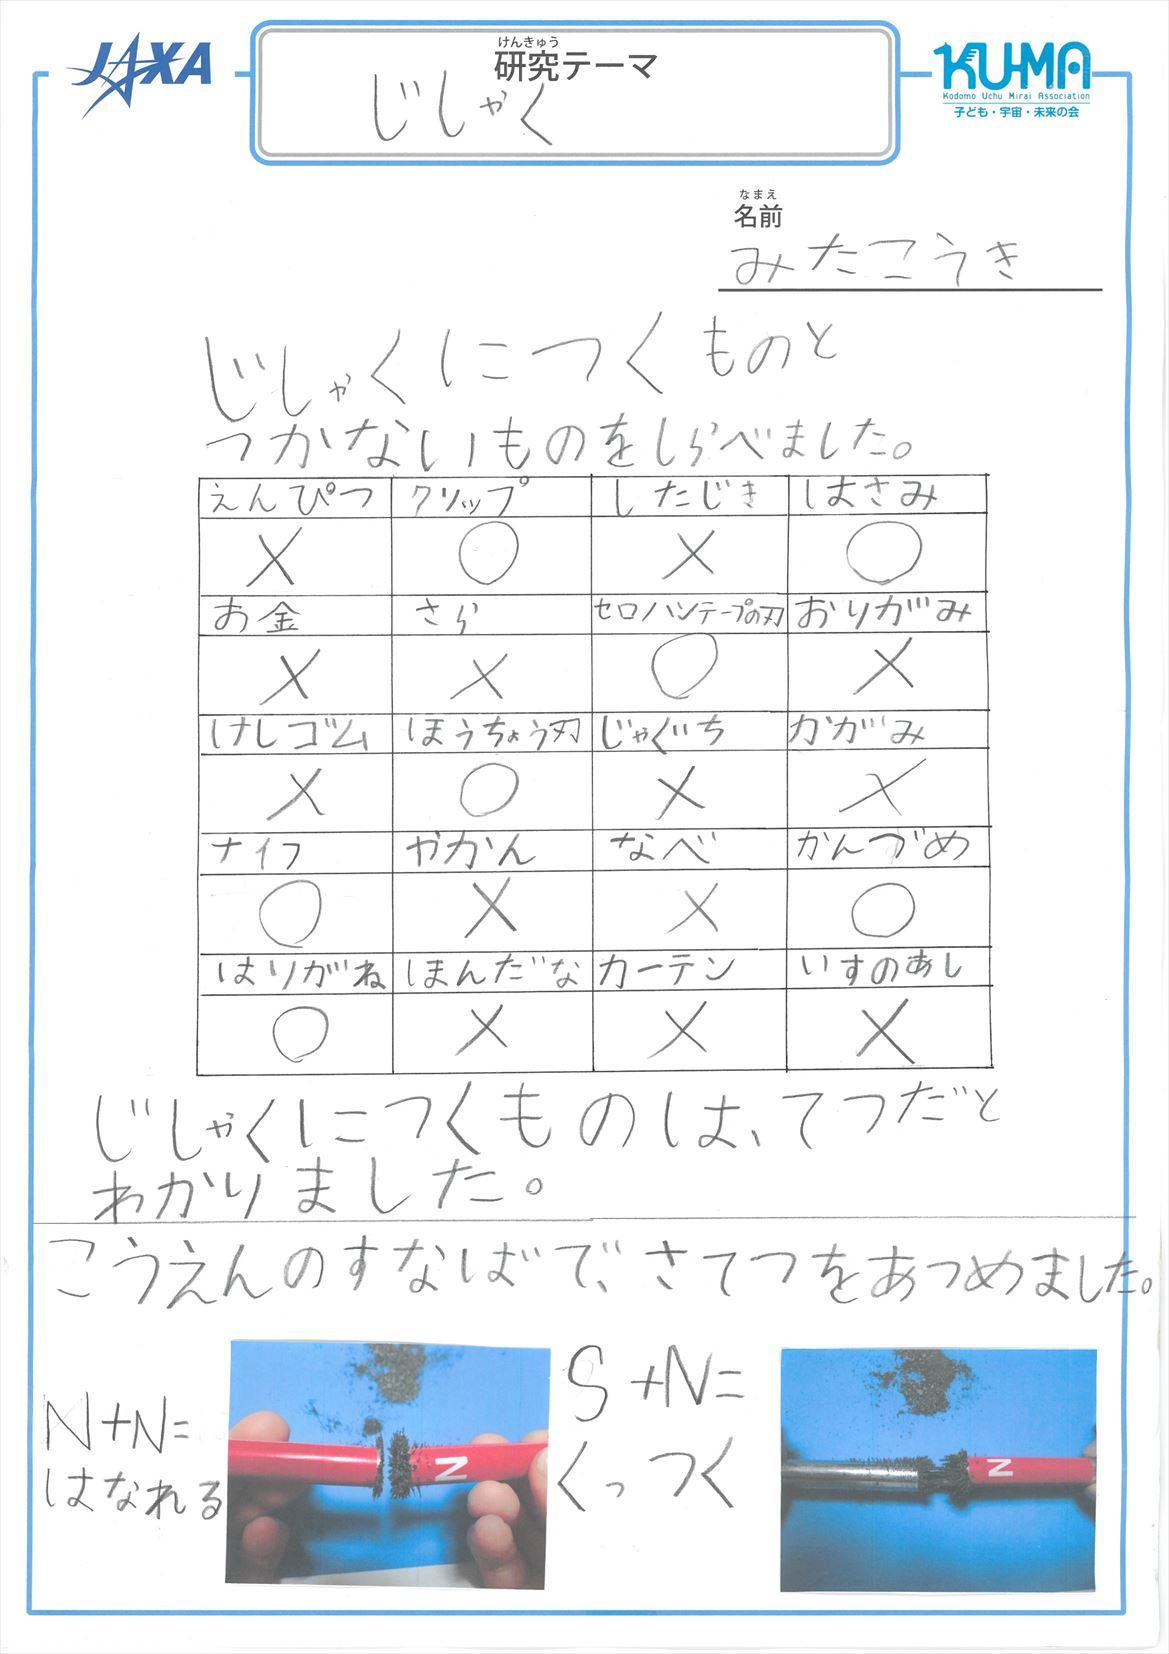 JAXA
けんきゅう
研究テーマ
じしゃく
KU-MA
Kodomo Uchu Mirai Association
子ども・宇宙・未来の会
なまえ
名前
みたこうき
じしゃくにつくものと
つかないものをしらべました。
えんぴつ クリップ したじき はさみ
× ○ × ○
お金 さら セロハンテープの刃 おりがみ
× × ○ ×
けしゴム ほうちょう刃 じゃぐち かがみ
× ○ × ×
ナイフ やかん なべ かんづめ
○ × × ○
はりがね ほんだな カーテン いすのあし
○ × × ×
じしゃくにつくものは、てつだと
わかりました。
こうえんのすなばで、さてつをあつめました。
N+N=
はなれる
N
S+N=
くっつく
N